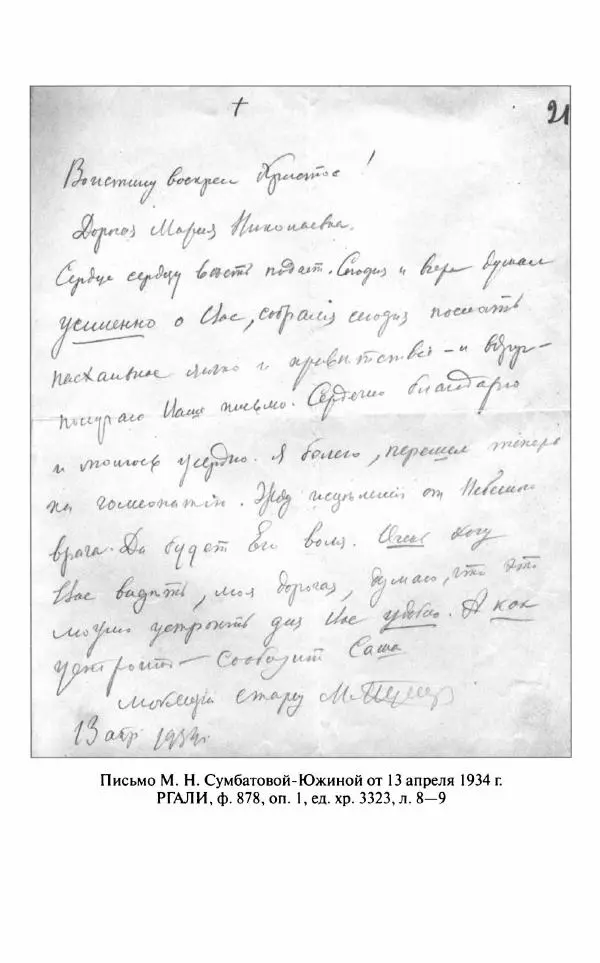 †
21
Воистину воскрес Христос!
Дорогая Мария Николаевна.
Сердце сердцу весть подает. Сегодня и вчера думал
усиленно о Вас, собрался сегодня послать
пасхальное яичко и приветствие – и вдруг –
получаю Ваше письмо. Сердечно благодарю
и молюсь усердно. Я болею, перешел теперь
на гомеопатию. Жду исцеления от Небесного
врача. Да будет Его воля. Очень хочу
Вас видеть, моя дорогая, думаю, что это
можно устроить для Вас удобно. А как
устроить – сообщит Саша
старец
13 апр 1934 г.
Письмо М. Н. Сумбатовой-Южиной от 13 апреля 1934 г.
РГАЛИ, ф. 878, оп. 1, ед. хр. 3323, л. 8—9